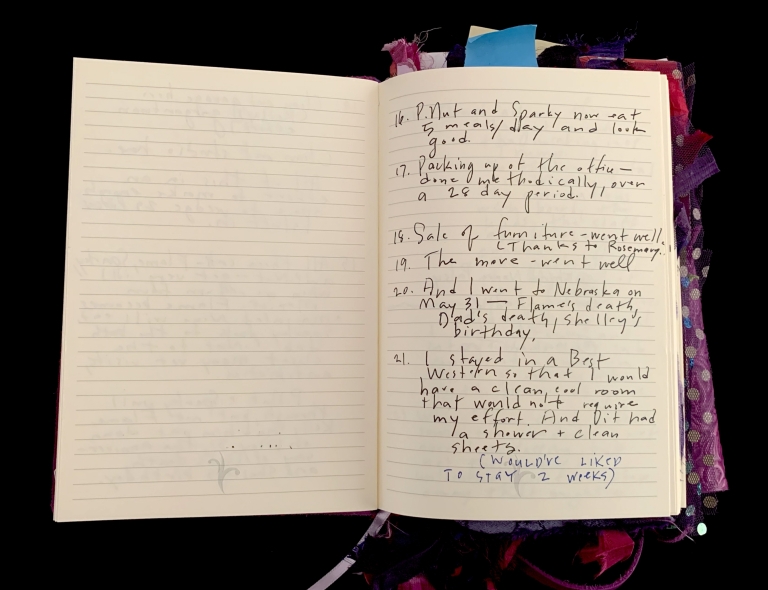 16. P.Nut and Sparky now eat
5 meals/day and look
good.
17. Packing up of the office –
done methodically, over
a 28 day period.
18. Sale of furniture – went well.
(Thanks to Rosemary.)
19. The move – went well
20. And I went to Nebraska on
May 31 — Flame's death,
Dad's death, Shelley's
birthday.
21. I stayed in a Best
Western so that I would
have a clean, cool room
that would not require
my effort. And it had
a shower + clean
sheets.
(WOULD'VE LIKED
TO STAY 2 weeks)